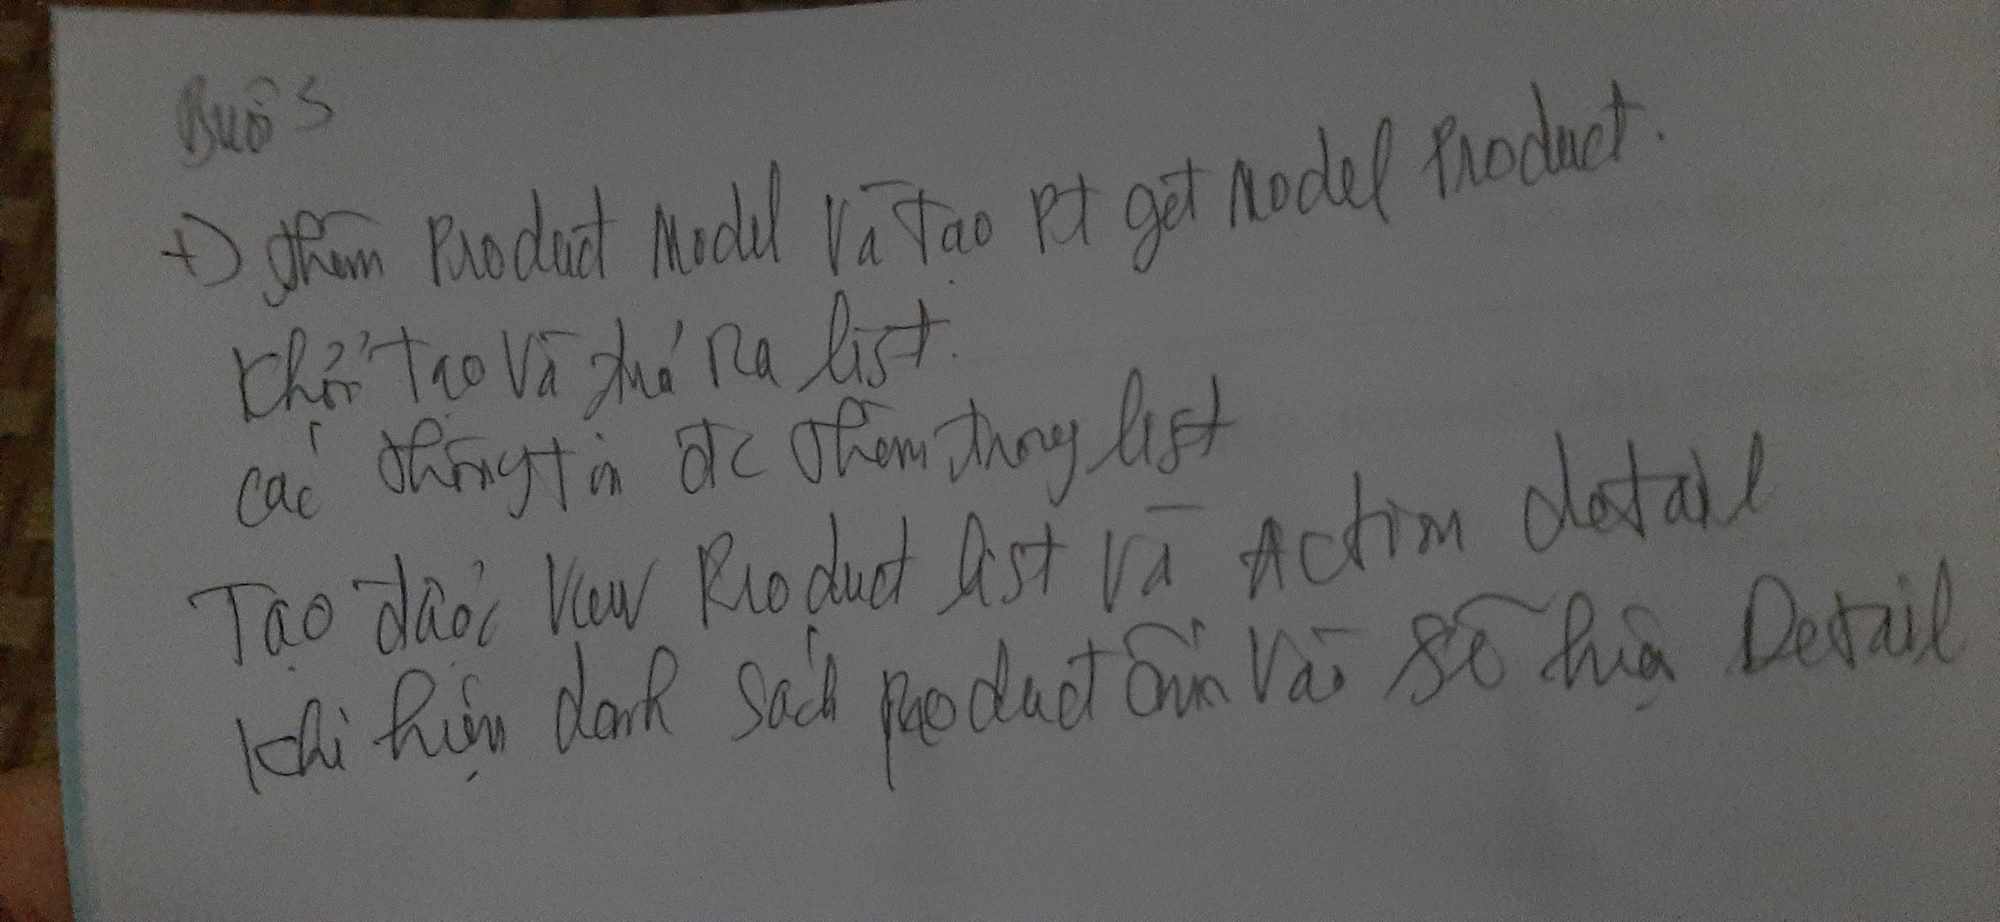 Buổi 3
+) thêm Product Model và tạo Pt get Model Product.
khởi tạo và trả ra list.
các thông tin đc thêm trong list
Tạo được View Product list và Action detail
khi hiện danh sách product ấn vào sẽ hiện Detail